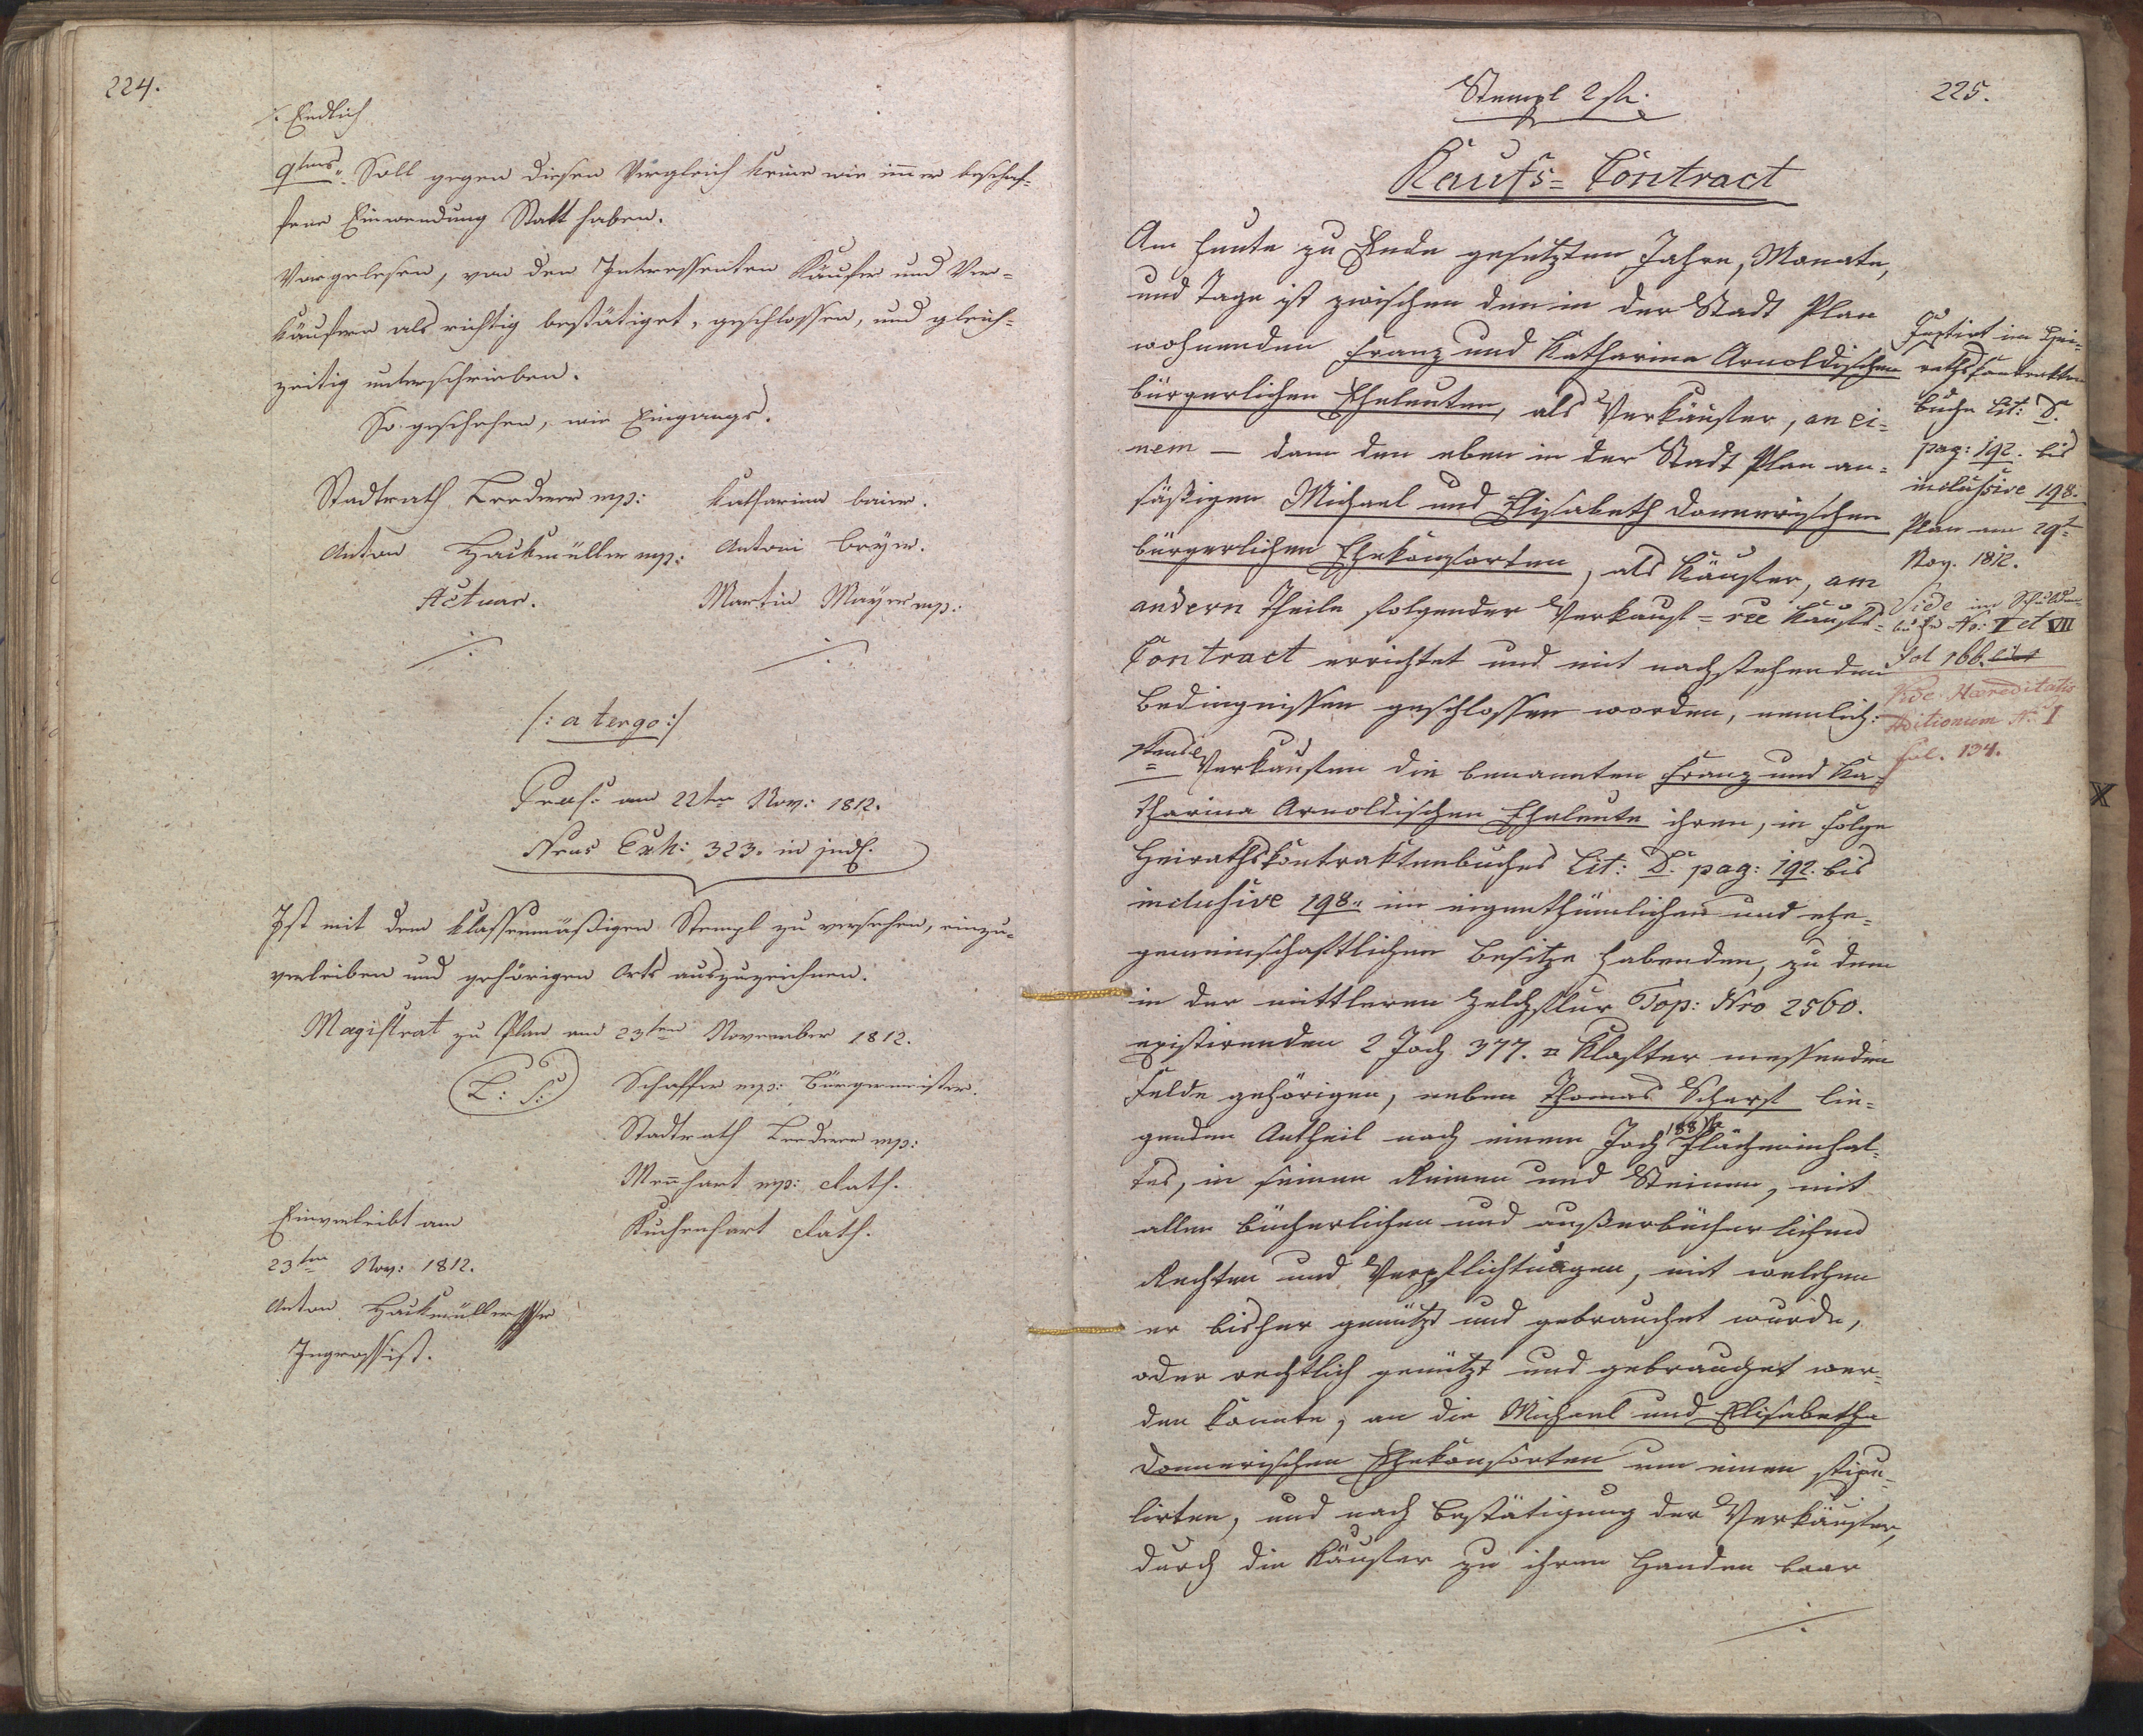 224.
/: Endlich
9tens: Soll gegen diesen Vergleich keine wie im̅er beschaf-
fene Einwendung Statt haben.
Vorgelesen, von den Interessenten Käufer und Ver-
käufern als richtig bestätiget, geschlossen, und gleich-
zeitig unterschrieben.
So geschehen, wie Eingangs.
Stadtrath mp:
Katharina baier.
Anton Hackmüller mp:
Antoni beÿer.
Actuar.
Martin Mayer mp:
/: a tergo :/
Praes: am 22ten Nov: 1812.
Nrus Exh: 323. in jud.
Ist mit dem klassenmäßigen Stempl zu versehen, einzu-
verleiben und gehörigen Orts auszuzeichnen.
Magistrat zu Plan am 23ten November 1812.
L: S:
Schaffer mp: Bürgermeister.
Stadtrath mp:
Men̅hart mp: Rath.
Kuchenhart Rath.
Einverleibt am
23ten Nov: 1812.
Anton Hackmüller
Ingrossist.
225.
Stempl 2 fl.
Kaufs= Contract
Am heute zu Ende gesetzten Jahre, Monate,
und Tage ist zwischen den in der Stadt Plan
wohnenden Franz und Katharina Arnoldischen
bürgerlichen Eheleuten, als Verkäufer, an ei=
nem — dann den eben in der Stadt Plan an=
säßigen Michael und Elisabeth Donnerischen
bürgerlichen Ehekonsorten, als Käufer, am
andern Theile folgender Verkauf= ree Kaufs=
Contract errichtet und mit nachstehenden
Bedingnissen geschlossen worden, nemlich:
1tens Verkaufen die benannten Franz und Ka=
tharina Arnoldischen Eheleute ihren, in Folge
Heirathskontraktenbuches Lit: D. pag: 192. bis
inclusive 198. im eigenthümlichen und ehe-
gemeinschaftlichen Besitze habenden, zu dem
in der mittleren Zelchflur Top: Nro 2560.
existirenden 2 Joch 377. □ Klafter messenden
Felde gehörigen, neben Thomas Scharf lie-
genden Antheil nach einem Joch 188 ½ Flächeninhal-
tes, in seinen Reinen und Steinen, mit
allen bücherlichen und außerbücherlichen
Rechten und Verpflichtungen, mit welchen
er bisher genützt und gebrauchet wurde,
oder rechtlich genützt und gebrauchet wer-
den konnte, an die Michael und Elisabetha
Donnerischen Ehekonsorten um einen stipu-
lirten, und nach Bestätigung der Verkäufer,
durch die Käufer zu ihren Handen baar
im Hei-
rathskontrakten
buche Lit: D.
pag: 192. bis
inclusive 198.
Plan am 29t
Nov. 1812.
Vide im Schulden-
buche No: V et VII
fol 166.
Vide Haereditatis
Aditionum No. I
fol. 134.
X